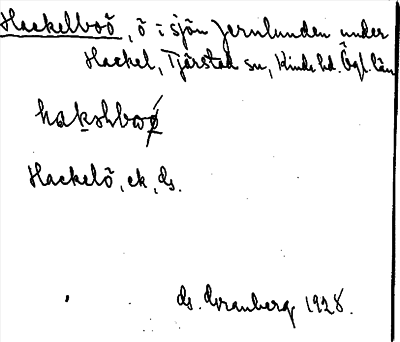 Hackelboö, ö i sjön Jernlunden under
Hackel, Tjärstad sn, Kinds hd. Ögl. län
hakshboø
Hackelö, ek, ds.
ds. Granberg 1928.